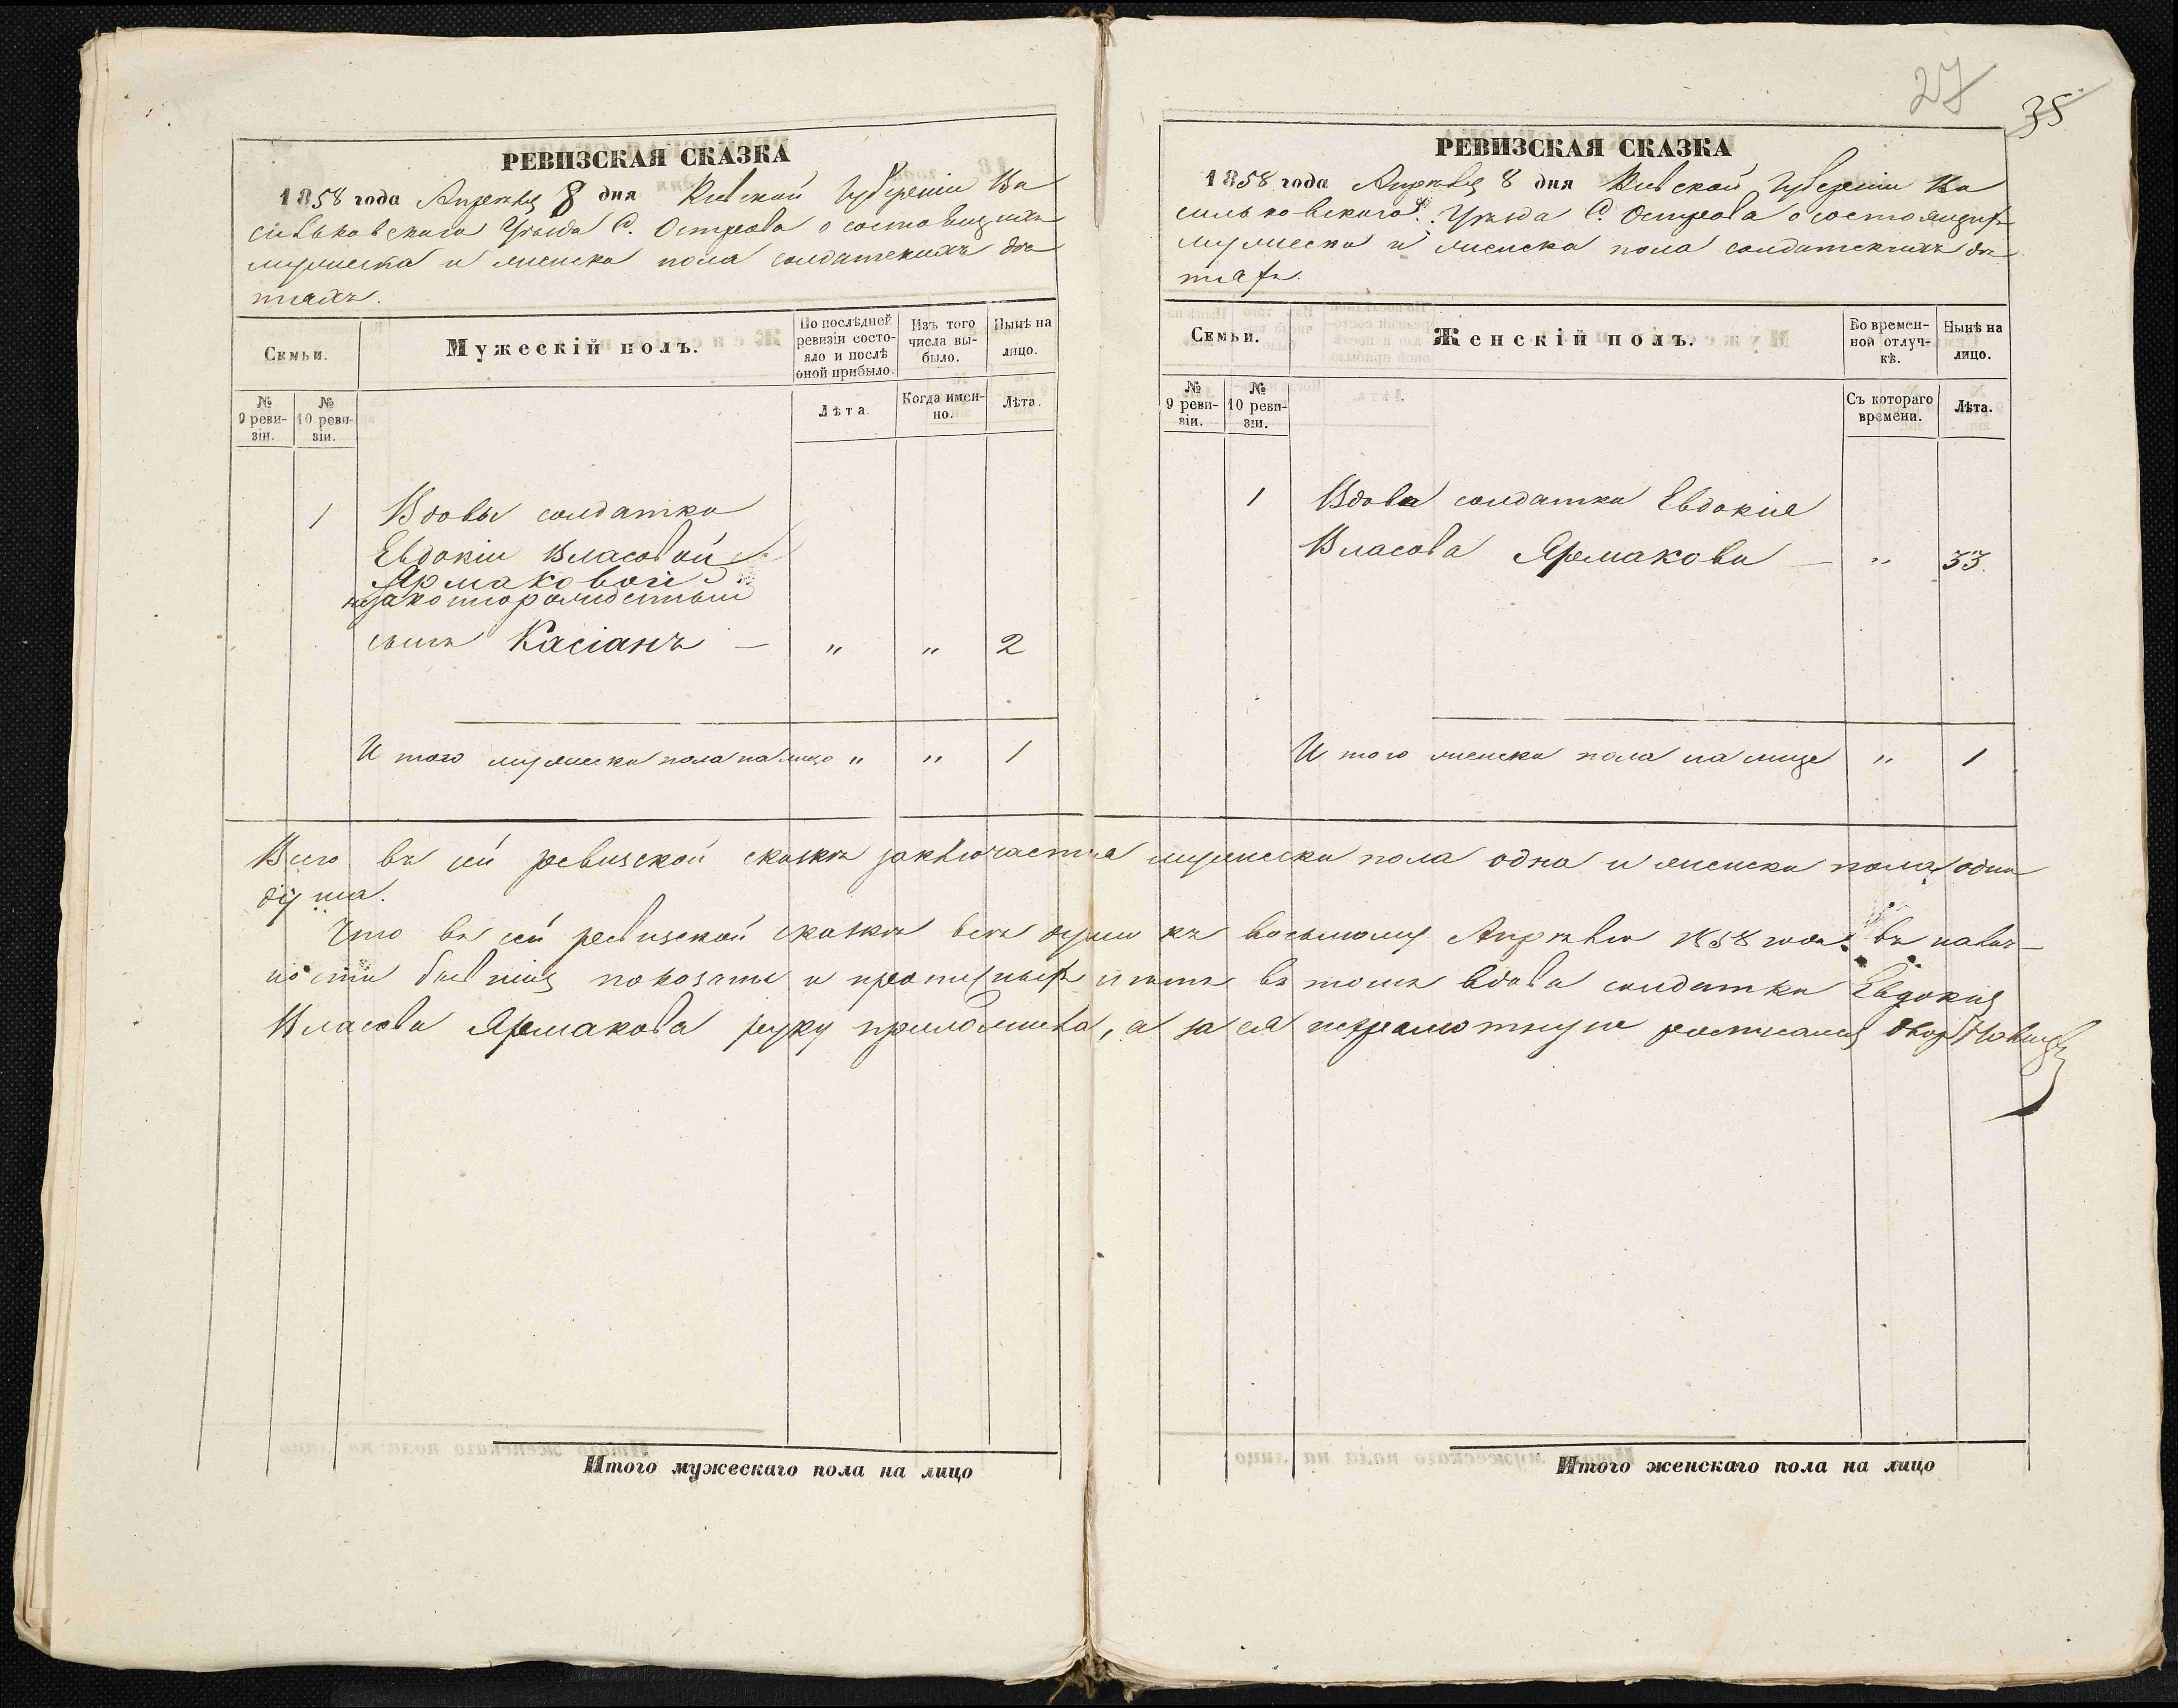 27
35
РЕВИЗСКАЯ СКАЗКА
1858 года Апреля 8 дня Киевской Губерніи Ва
сильковскаго Уѣзда С. Острова о состоящихъ
мужеска и женска пола солдатскихъ дѣ
тяхъ.
Семьи.
Мужескій полъ.
По послѣдней ревизіи состояло и послѣ оной прибыло.
Изъ того числа выбыло.
Нынѣ на лицо.
№ 9 ревизіи.
№ 10 ревизіи.
Лѣта.
Когда именно.
Лѣта.
1 Вдовы солдатки
Евдокіи Власовой
Ярмаковой
незаконорожденный
сынъ Касіанъ — " " 2
И того мужеска пола на лицо " " 1
РЕВИЗСКАЯ СКАЗКА
1858 года Апрѣля 8 дня Киевской Губерніи Ва
сильковского Уѣзда С. Острова о состоящихъ
мужеска и женска пола солдатскихъ дѣ
тяхъ.
Семьи.
Женскій полъ.
Во временной отлучкѣ.
Нынѣ на лицо.
№ 9 ревизіи.
№ 10 ревизіи.
Съ котораго времени.
Лѣта.
1 Вдова солдатка Евдокія
Власова Ярмакова — " 33
И того женска пола на лице " 1
Всего въ сей ревизской сказкѣ заключается мужеска пола одна и женска пола одна
душа.
Что въ сей ревизской сказкѣ всѣ души къ восьмому Апрѣлю 1858 года въ налич-
ности бывшія показаны и прописныхъ нѣтъ въ томъ вдова солдатка Евдокія
Власова Ярмакова руку приложила, а за ея неграмотную росписался двор
Итого мужескаго пола на лицо
Итого женскаго пола на лицо